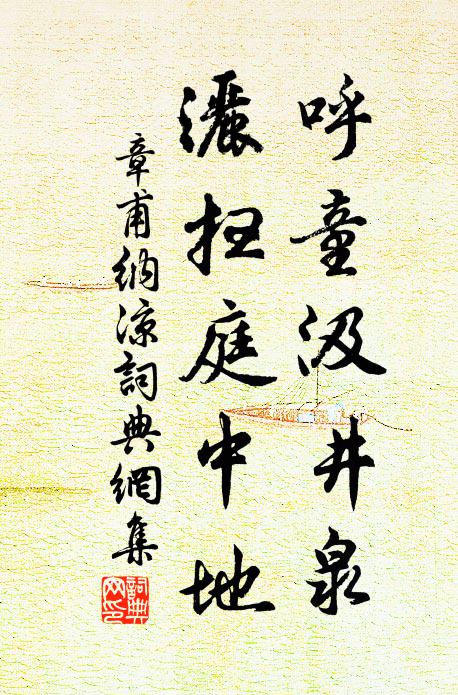 呼童汲井泉
灑扫庭中地
章甫納凉詞典網集
詞典
网印